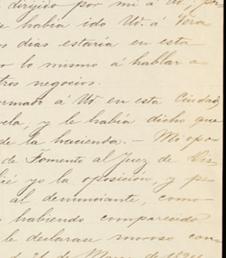 dirigido por mi á Ud, por
había ido Ud. á Vera
os dias estaria en esta
o lo mismo á hablar a
tros negocios.
ormado á Ud en esta Ciudad
ela, y le había dicho que
de la hacienda. — Mi opo
de Fomento al juez de
yo la oposición, y pe
al denunciante, como
habiendo comparecido
le declarase moroso con
de